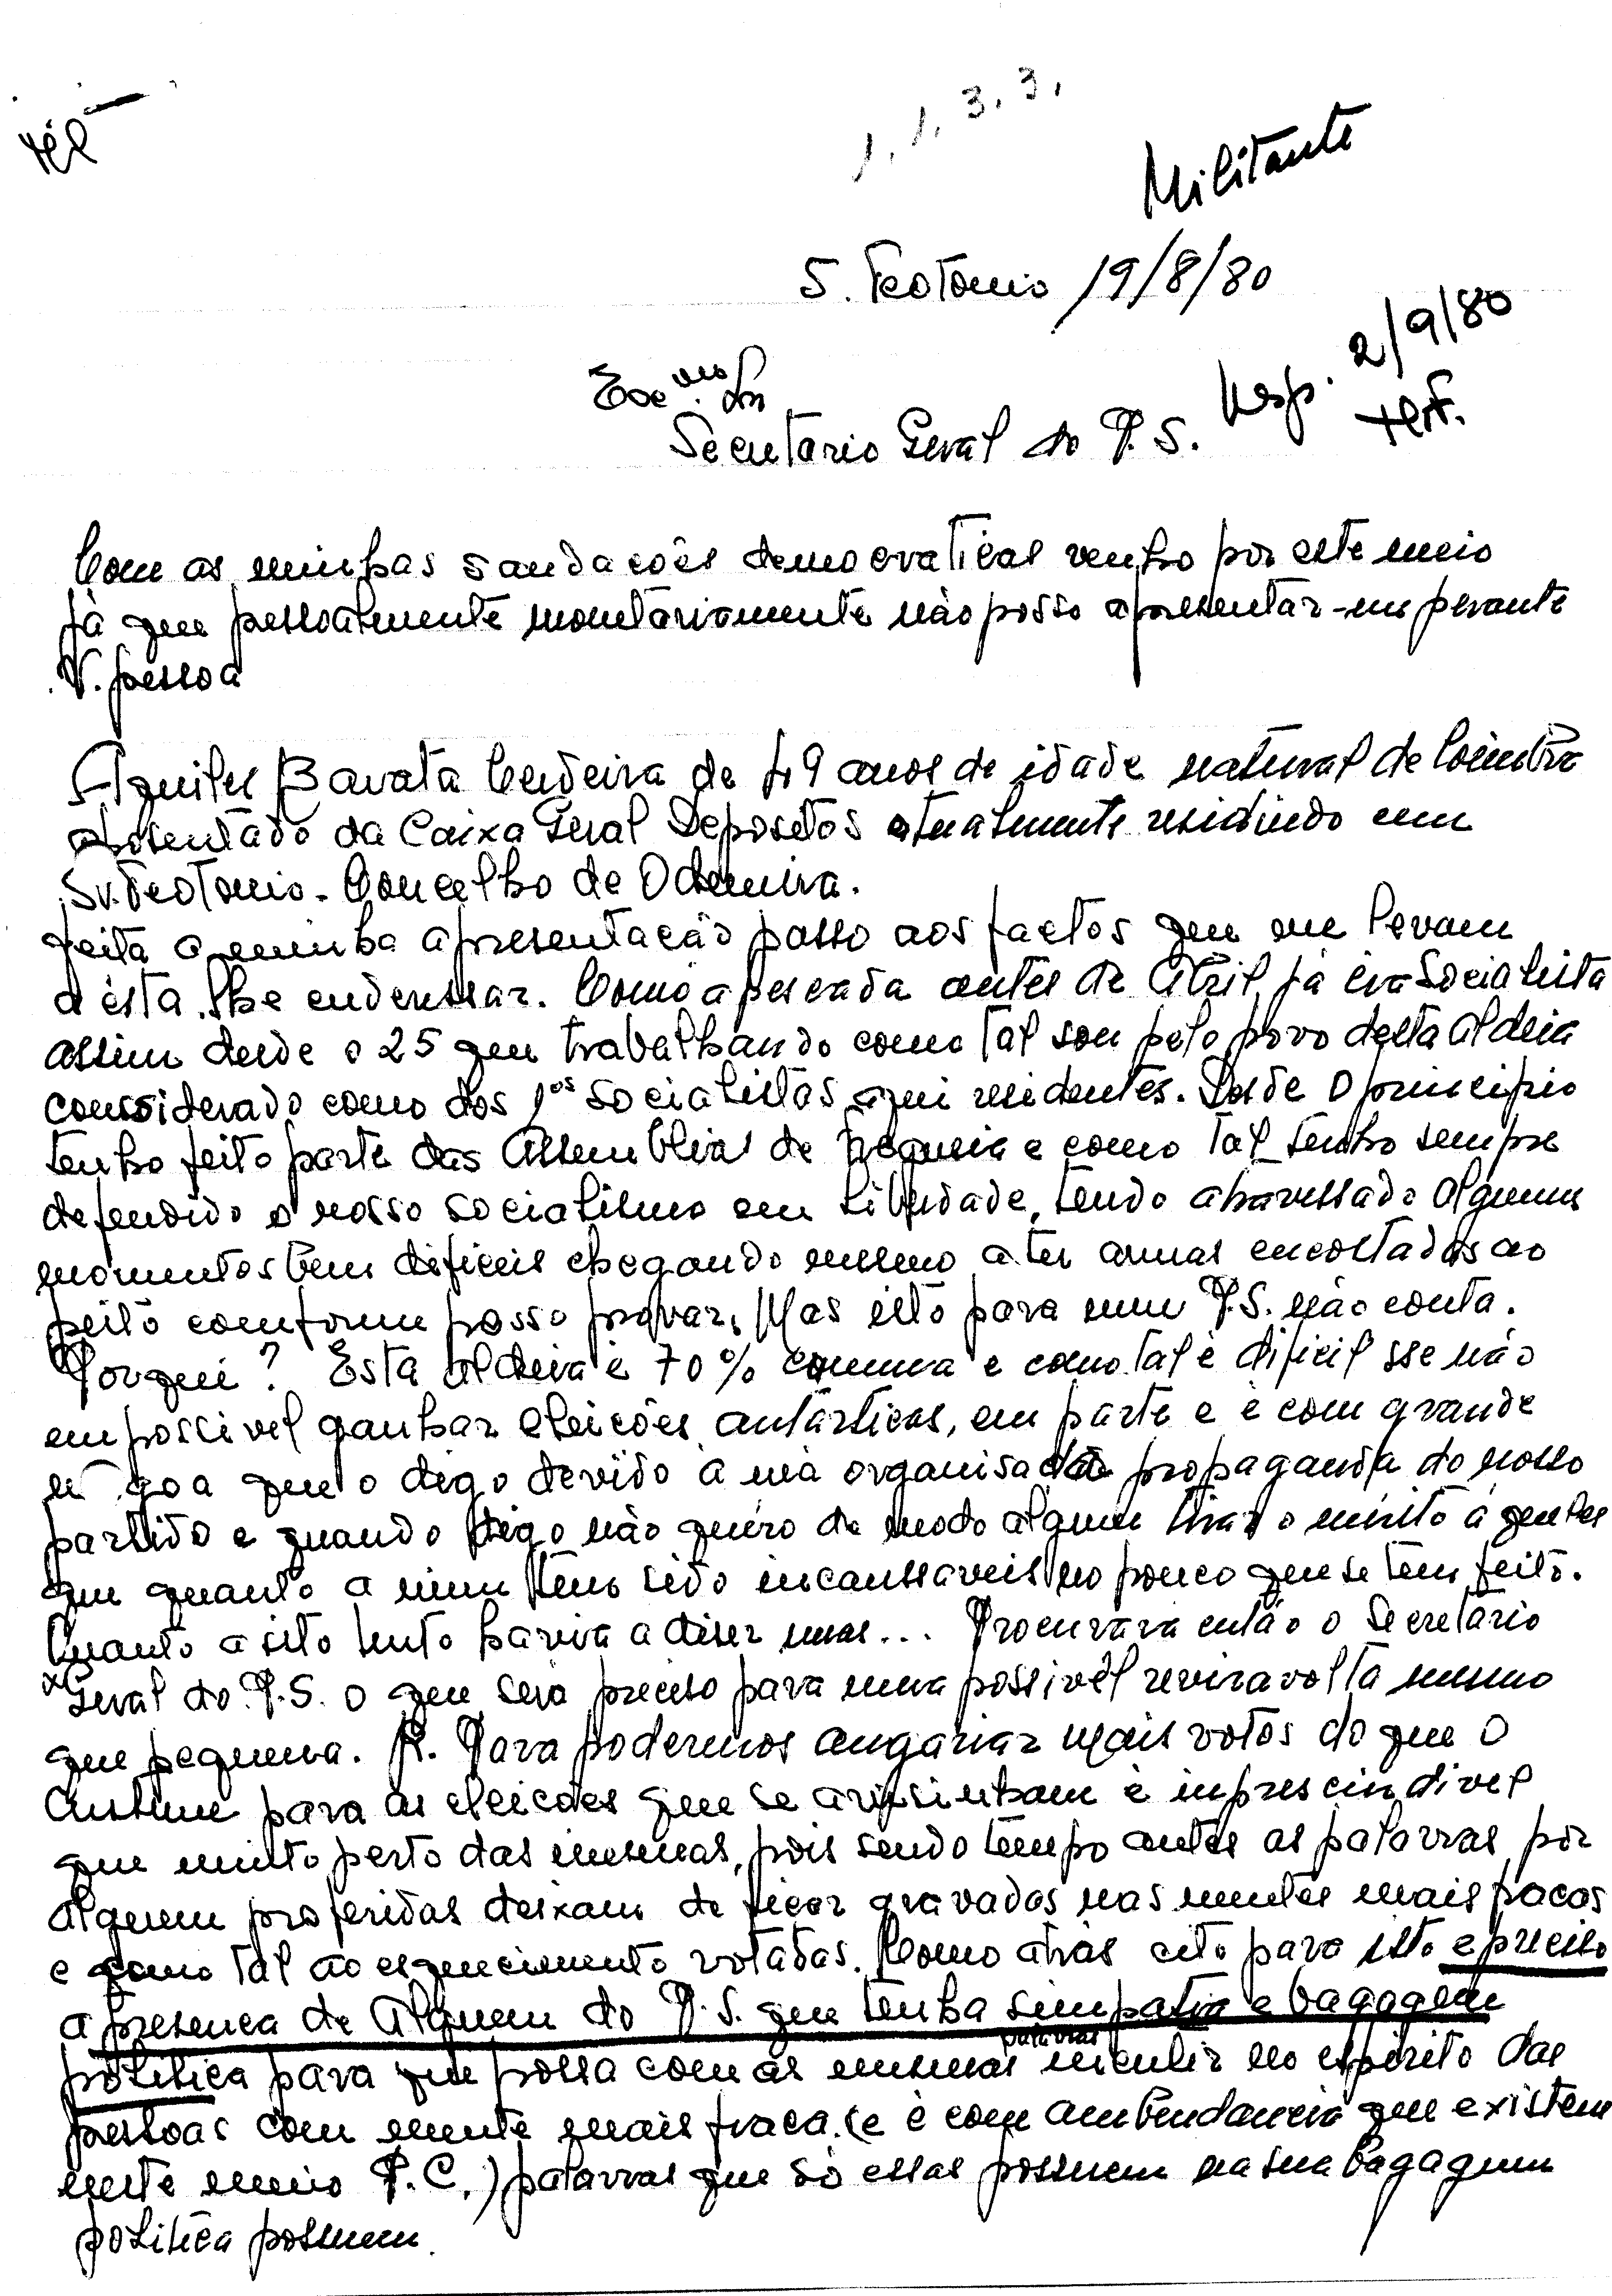 1. 1. 3. 3.
Militante
S. Teotonio 19/8/80
Resp. 2/9/80
Exmo. Sr
Secretario Geral do P. S.
Com as minhas saudacoês democraticas venho por este meio
já que pessoalmente monetáriamente não posso apresentar-me perante
V. pessoa
Aquiles Barata Cerdeira de 49 anos de idade natural de Coimbra
aposentado da Caixa Geral Depositos atualmente residindo em
Sv. Teotonio - Concelho de Odemira.
feita a minha apresentacão passo aos factos que me levam
a ésta lhe enderessar. Como a pescada antes de Abril já éra Socialista
assim desde o 25 que trabalhando como tal sou pelo povo desta aldeia
conssiderado como dos 1os socialistas aqui residentes. Desde o principio
tenho feito parte das Assembleias de Freguesia e como tal tenho sempre
defendido o nosso socialismo em Liberdade, tendo atravessado alguns
momentos bem dificeis chegando mesmo a ter armas encostadas ao
peito comforme posso provar. Mas isto para mim P.S. não conta.
Porquê? Esta aldeia é 70% comuna e como tal é dificil sse não
empossivel ganhar eleicões autárticas, em parte e é com grande
mágoa que o digo devido á má organisacão propaganda do nosso
partido e quando digo não quero de modo algum tirar o mérito a gentes
que quanto a mim têm sido incanssaveis no pouco que se tem feito.
Quanto a isto muito haveria a diser mas... Procurára então o Secretário
Geral do P.S. o que será preciso para uma possivél reviravolta mesmo
que pequena. R. Para podermos angariar mais votos do que o
custume para as eleicões que se avisinham é imprescindivel
que muito perto das mesmas, pois sendo tempo antes as palavras por
alguem proferidas deixam de ficar gravadas nas mentes mais fracas
e como tal ao esquecimento votadas. Como atrás cito para isto é preciso
a presenca de alguem do P.S. que tenha simpatia e bagagem
politica para que possa com as mesmas palavras incutir no espirito das
pessoas com mente mais fraca (e é com ambundancia que existem
neste meio P.C.) palavras que só essas possuem na sua bagagem
politica possuem.